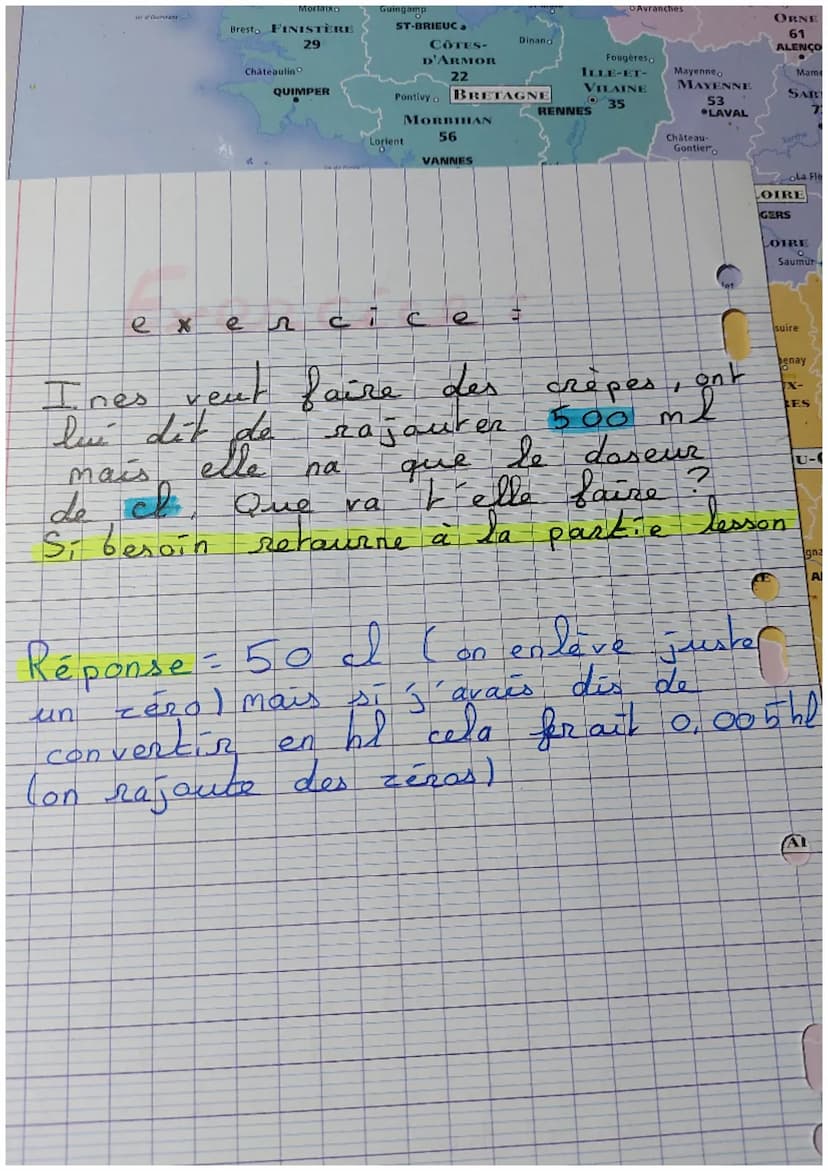 Morlaix
Guingamp
Avranches
ORNE
61
ALENÇO
Brest
FINISTÈRE
29
ST-BRIEUC
CÔTES-
D'ARMOR
22
Dinan
Fougères
Châteaulin
QUIMPER
Pontivy
BRETAGNE
ILLE-ET-
VILAINE
35
RENNES
Mayenne
MAYENNE
53
LAVAL
Mame
SAR
7
MORBIHAN
56
Lorient
VANNES
Château-
Gontier
La Flè
LOIRE
GERS
LOIRE
Saumur
Exercice :
e x e r c i c e :
Ines veut faire des crèpes, ont
lui dit de rajouter 500 ml
mais elle na que le doseur
de cl. Que va t'elle faire ?
Si besoin retourne à la partie lesson
Réponse = 50 cl (on enlève juste
un zéro) mais si j'avais dis de
convertir en hl cela ferait 0,005hl
(on rajoute des zéros)
suire
enay
X-
RES
U-C
gna
AI